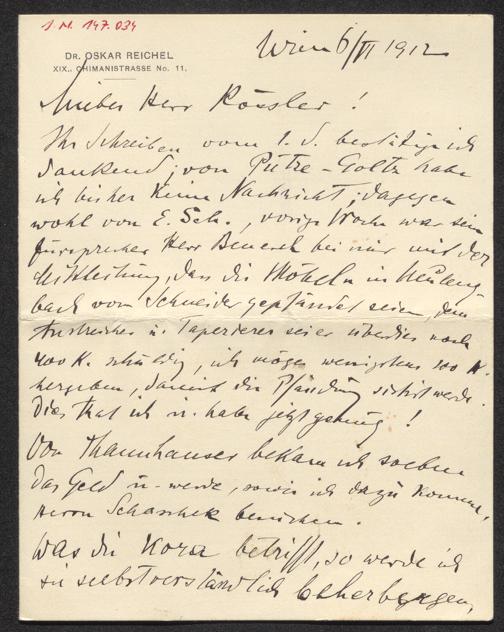 I. N. 147.034
DR. OSKAR REICHEL
XIX., CHIMANISTRASSE No. 11.
Wien 6/VI 1912
Lieber Herr Rössler!
Ihr Schreiben vom 1. d. bestätige ich
dankend; von Putze-Goltz habe
ich bisher keine Nachricht; dagegen
wohl von E. Sch., vorige Woche war sein
Fürsprecher Herr Benesch bei mir mit der
Mittheilung, dass die Möbeln in Neuleng-
bach vom Schneider gepfändet seien, dem
Anstreicher u. Tapezierer sei er überdies noch
400 K. schuldig, ich möge wenigstens 100 K.
hergeben, damit die Pfändung sistirt werde.
Dies that ich u. habe jetzt genug!
Von Thannhauser bekam ich soeben
das Geld u. werde, sowie ich dazu komme,
Herrn Schaschek besuchen.
Was die Kora betrifft, so werde ich
sie selbstverständlich beherbergen,